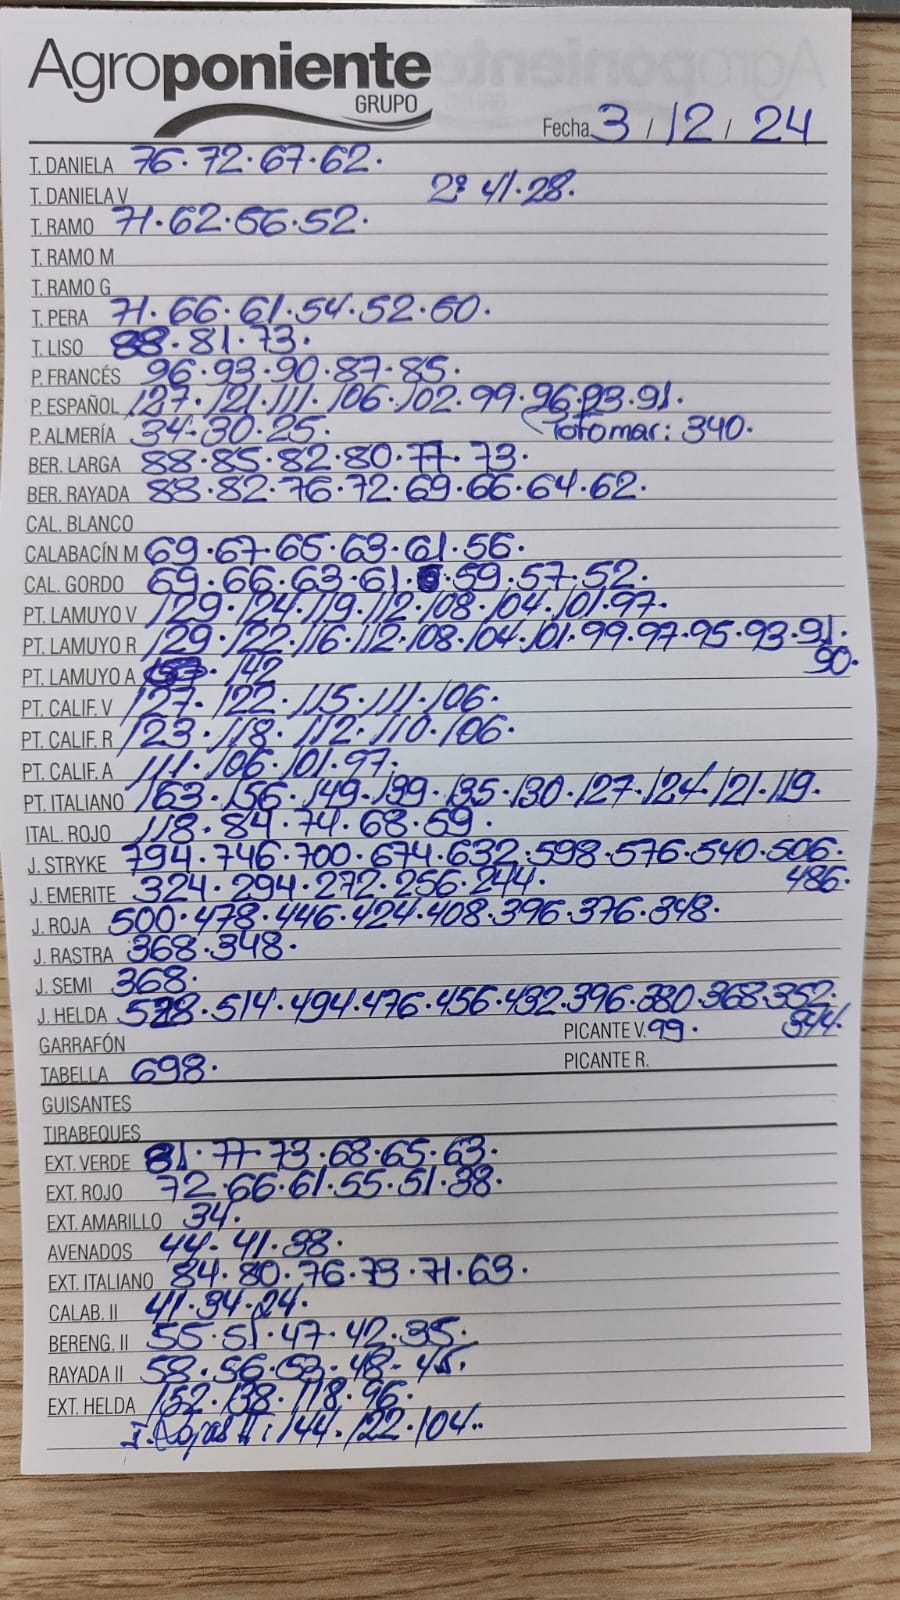 Agroponiente
GRUPO
Fecha 3 / 12 / 24
T. DANIELA 76·72·67·62·
T. DANIELA V 2ª 41·28·
T. RAMO 71·62·56·52·
T. RAMO M
T. RAMO G
T. PERA 71·66·61·54·52·50·
T. LISO 88·81·73·
P. FRANCÉS 96·93·90·87·85·
P. ESPAÑOL 127·121·111·106·102·99·96·93·91·
P. ALMERÍA 34·30·25· Totomar: 340·
BER. LARGA 88·85·82·80·77·73·
BER. RAYADA 88·82·76·72·69·66·64·62·
CAL. BLANCO
CALABACÍN M 69·67·65·63·61·56·
CAL. GORDO 69·66·63·61·59·57·52·
PT. LAMUYO V 129·124·119·112·108·104·101·97·
PT. LAMUYO R 129·122·116·112·108·104·101·99·97·95·93·91·
90·
PT. LAMUYO A 142
PT. CALIF. V 127·122·115·111·106·
PT. CALIF. R 123·118·112·110·106·
PT. CALIF. A 111·106·101·97·
PT. ITALIANO 163·156·149·139·135·130·127·124·121·119·
ITAL. ROJO 118·84·74·68·59·
J. STRYKE 794·746·700·674·632·598·576·540·506·
486·
J. EMERITE 324·294·272·256·244·
J. ROJA 500·478·446·424·408·396·376·348·
J. RASTRA 368·348·
J. SEMI 368·
J. HELDA 528·514·494·476·456·432·396·380·368·352·
344·
GARRAFÓN PICANTE V. 99·
TABELLA 698· PICANTE R.
GUISANTES
TIRABEQUES
EXT. VERDE 81·77·73·68·65·63·
EXT. ROJO 72·66·61·55·51·38·
EXT. AMARILLO 34·
AVENADOS 44·41·38·
EXT. ITALIANO 84·80·76·73·71·63·
CALAB. II 41·34·24·
BERENG. II 55·51·47·42·35·
RAYADA II 58·56·53·48·45·
EXT. HELDA 152·138·118·96·
J. Rojas II: 144·122·104··